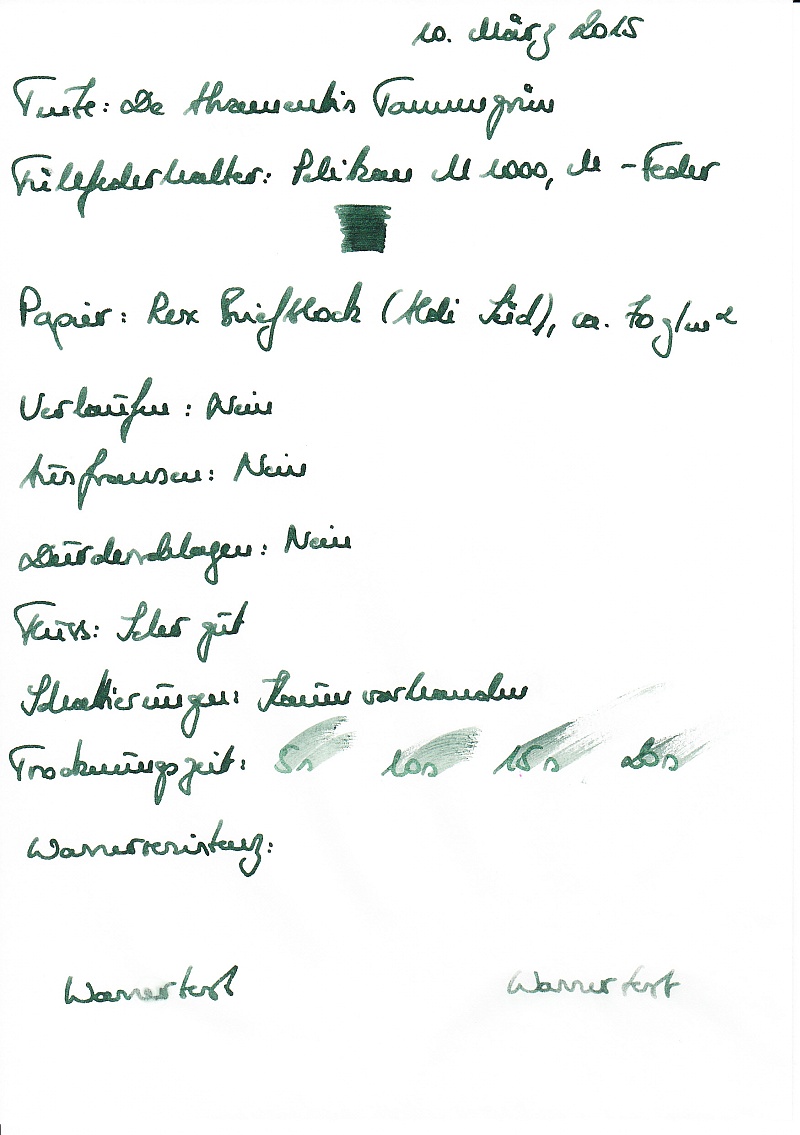 10. März 2015
Tinte: De Atramentis Tannengrün
Füllfederhalter: Pelikan M 1000, M-Feder
Papier: Rex Briefblock (Aldi Süd), ca. 70 g/m²
Verlaufen: Nein
Ausfransen: Nein
Durchschlagen: Nein
Fluss: Sehr gut
Schattierungen: Kaum vorhanden
Trocknungszeit: 5s 10s 15s 20s
Wasserresistenz:
Wassertest Wassertest